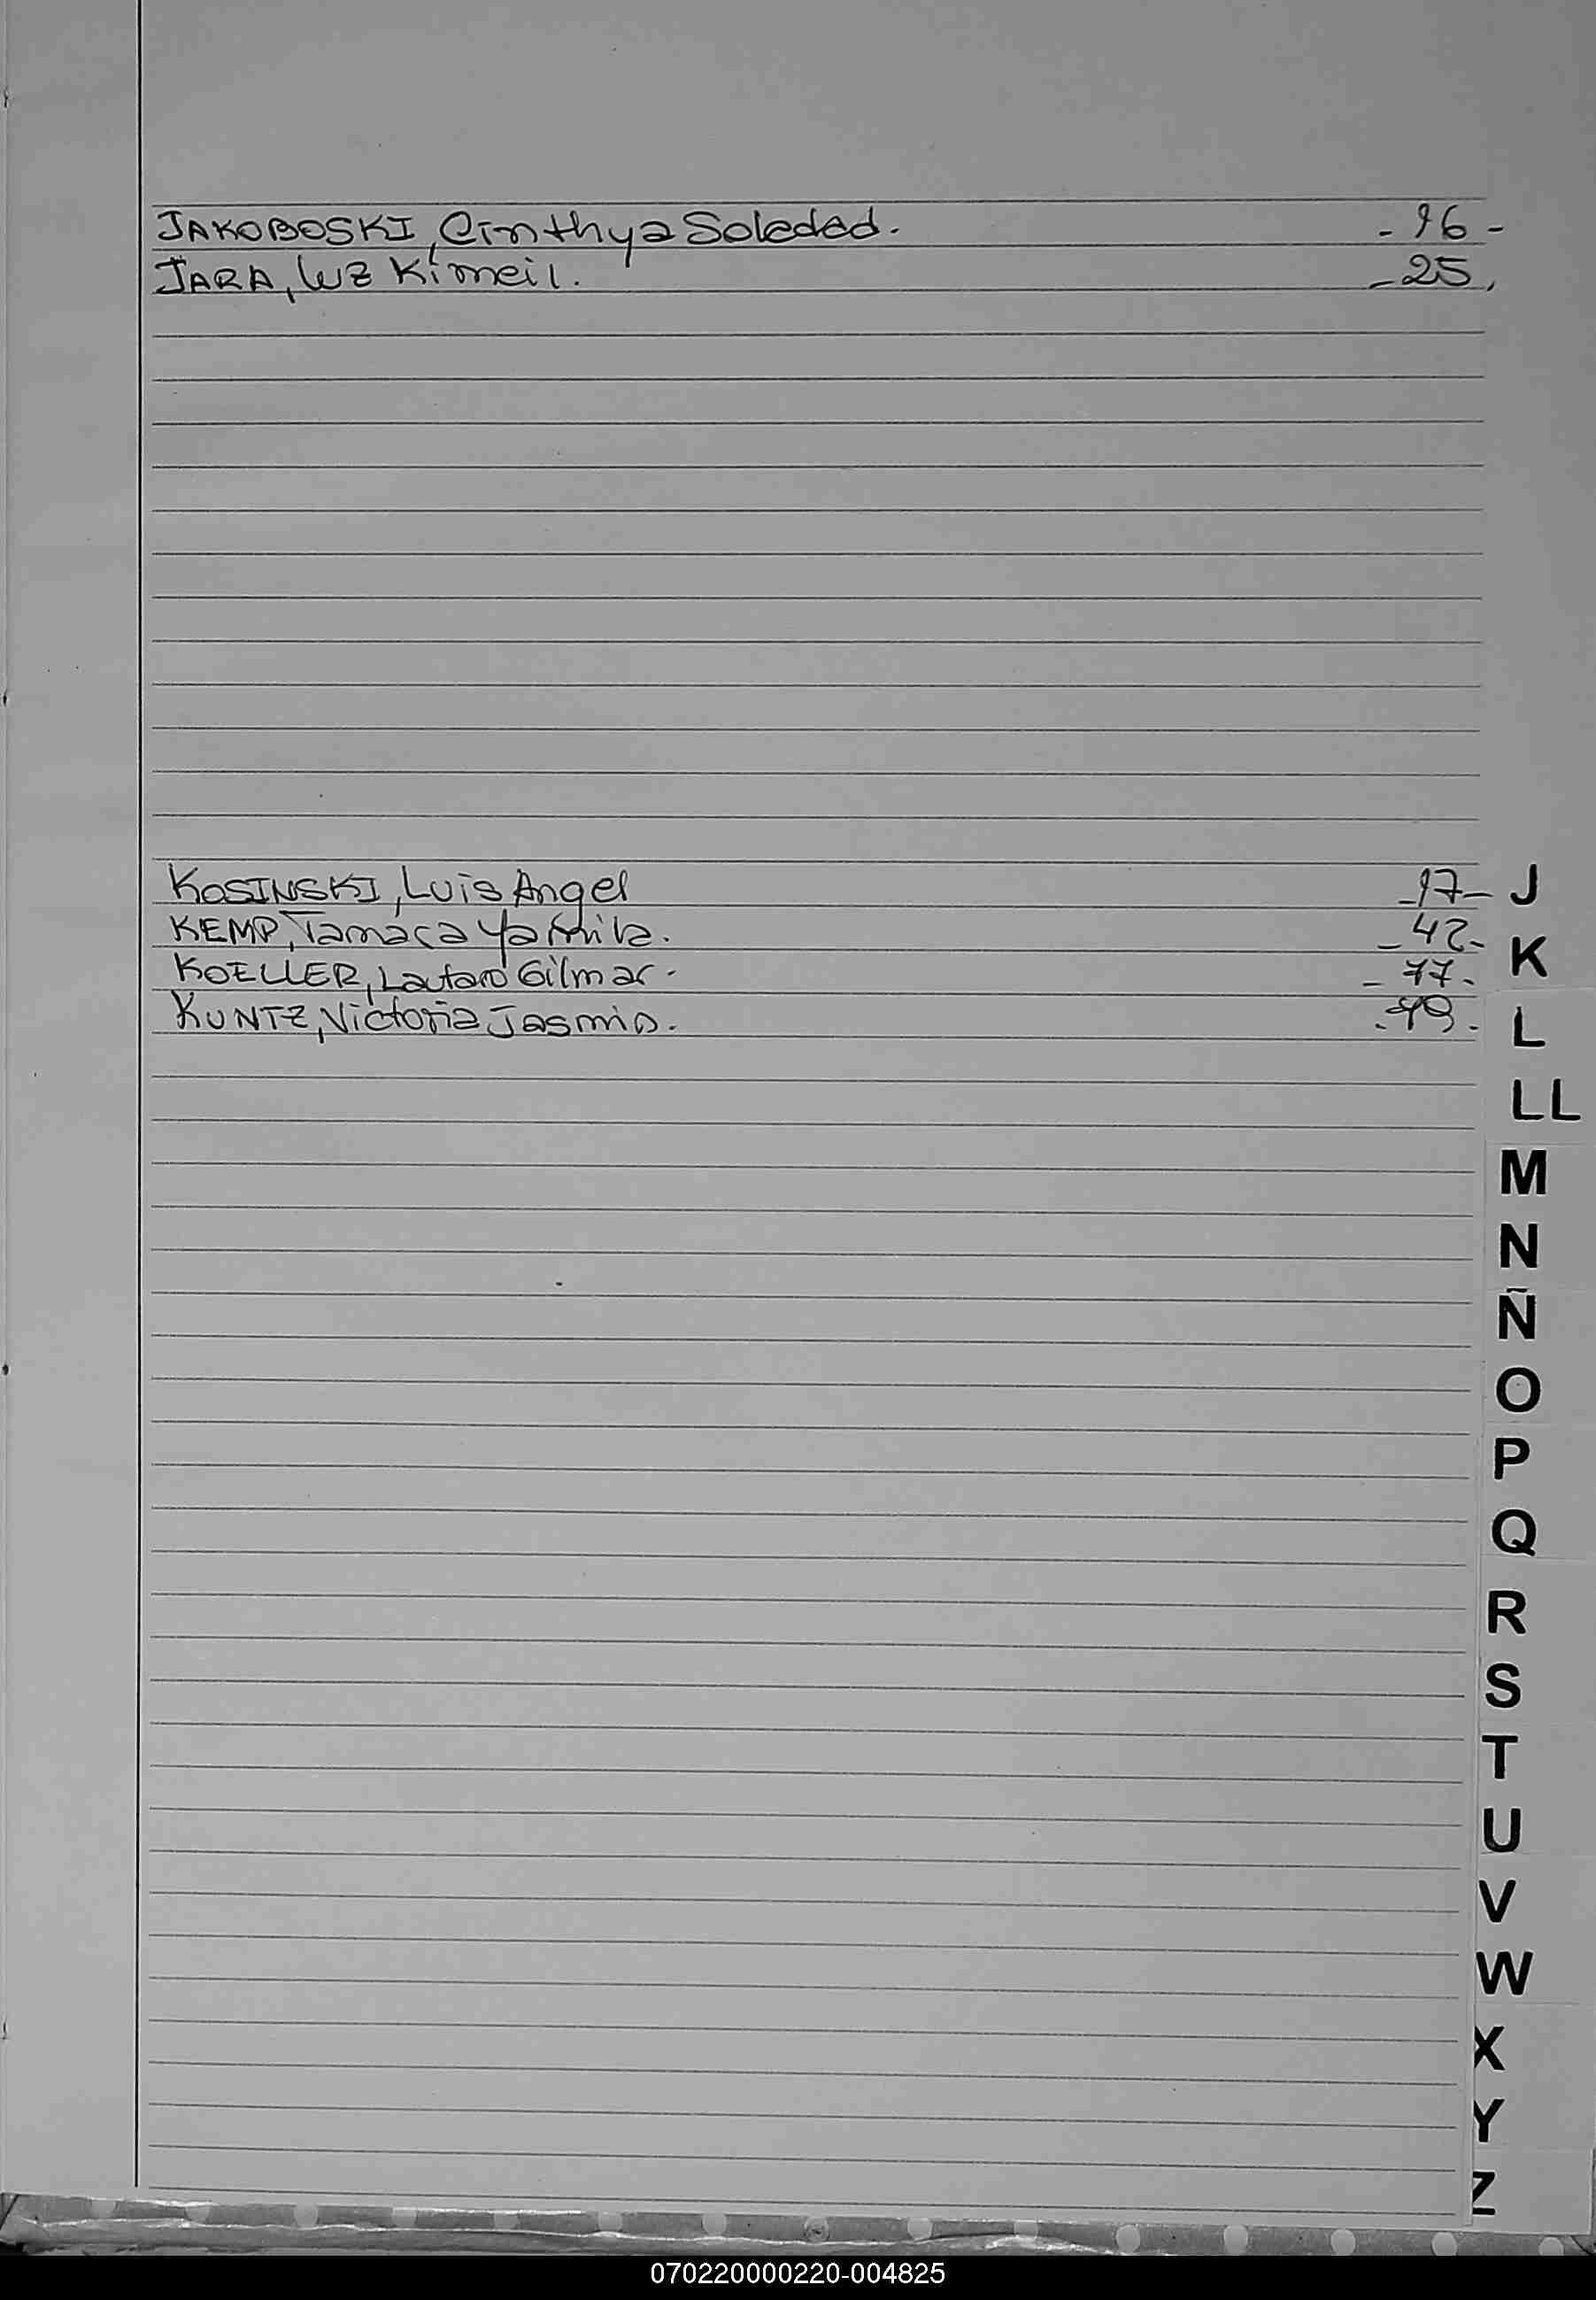 JAKOBOSKI, Cinthya Soledad. - 16 -
JARA, Luz Kimeil. - 25.
KOSINSKI, Luis Angel - 17 -
KEMP, Tamara Yamila. - 42 -
KOELLER, Lautaro Gilmar. - 77 -
KUNTZ, Victoria Jasmin.
J
K
L
LL
M
N
Ñ
O
P
Q
R
S
T
U
V
W
X
Y
Z
070220000220-004825